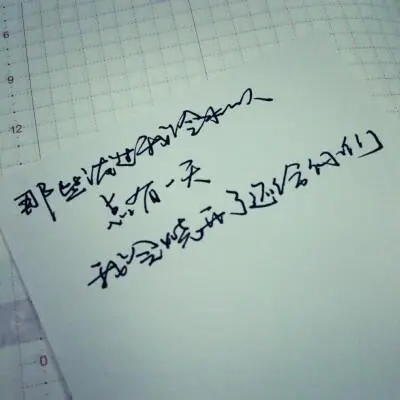 6
9
12
那些泼过我冷水的人
总有一天
我会烧开了还给你们
0